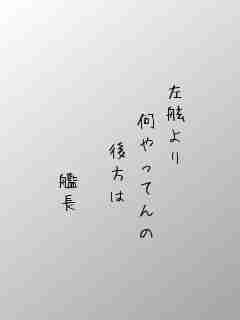 左舷より
何やってんの
後方は
艦長